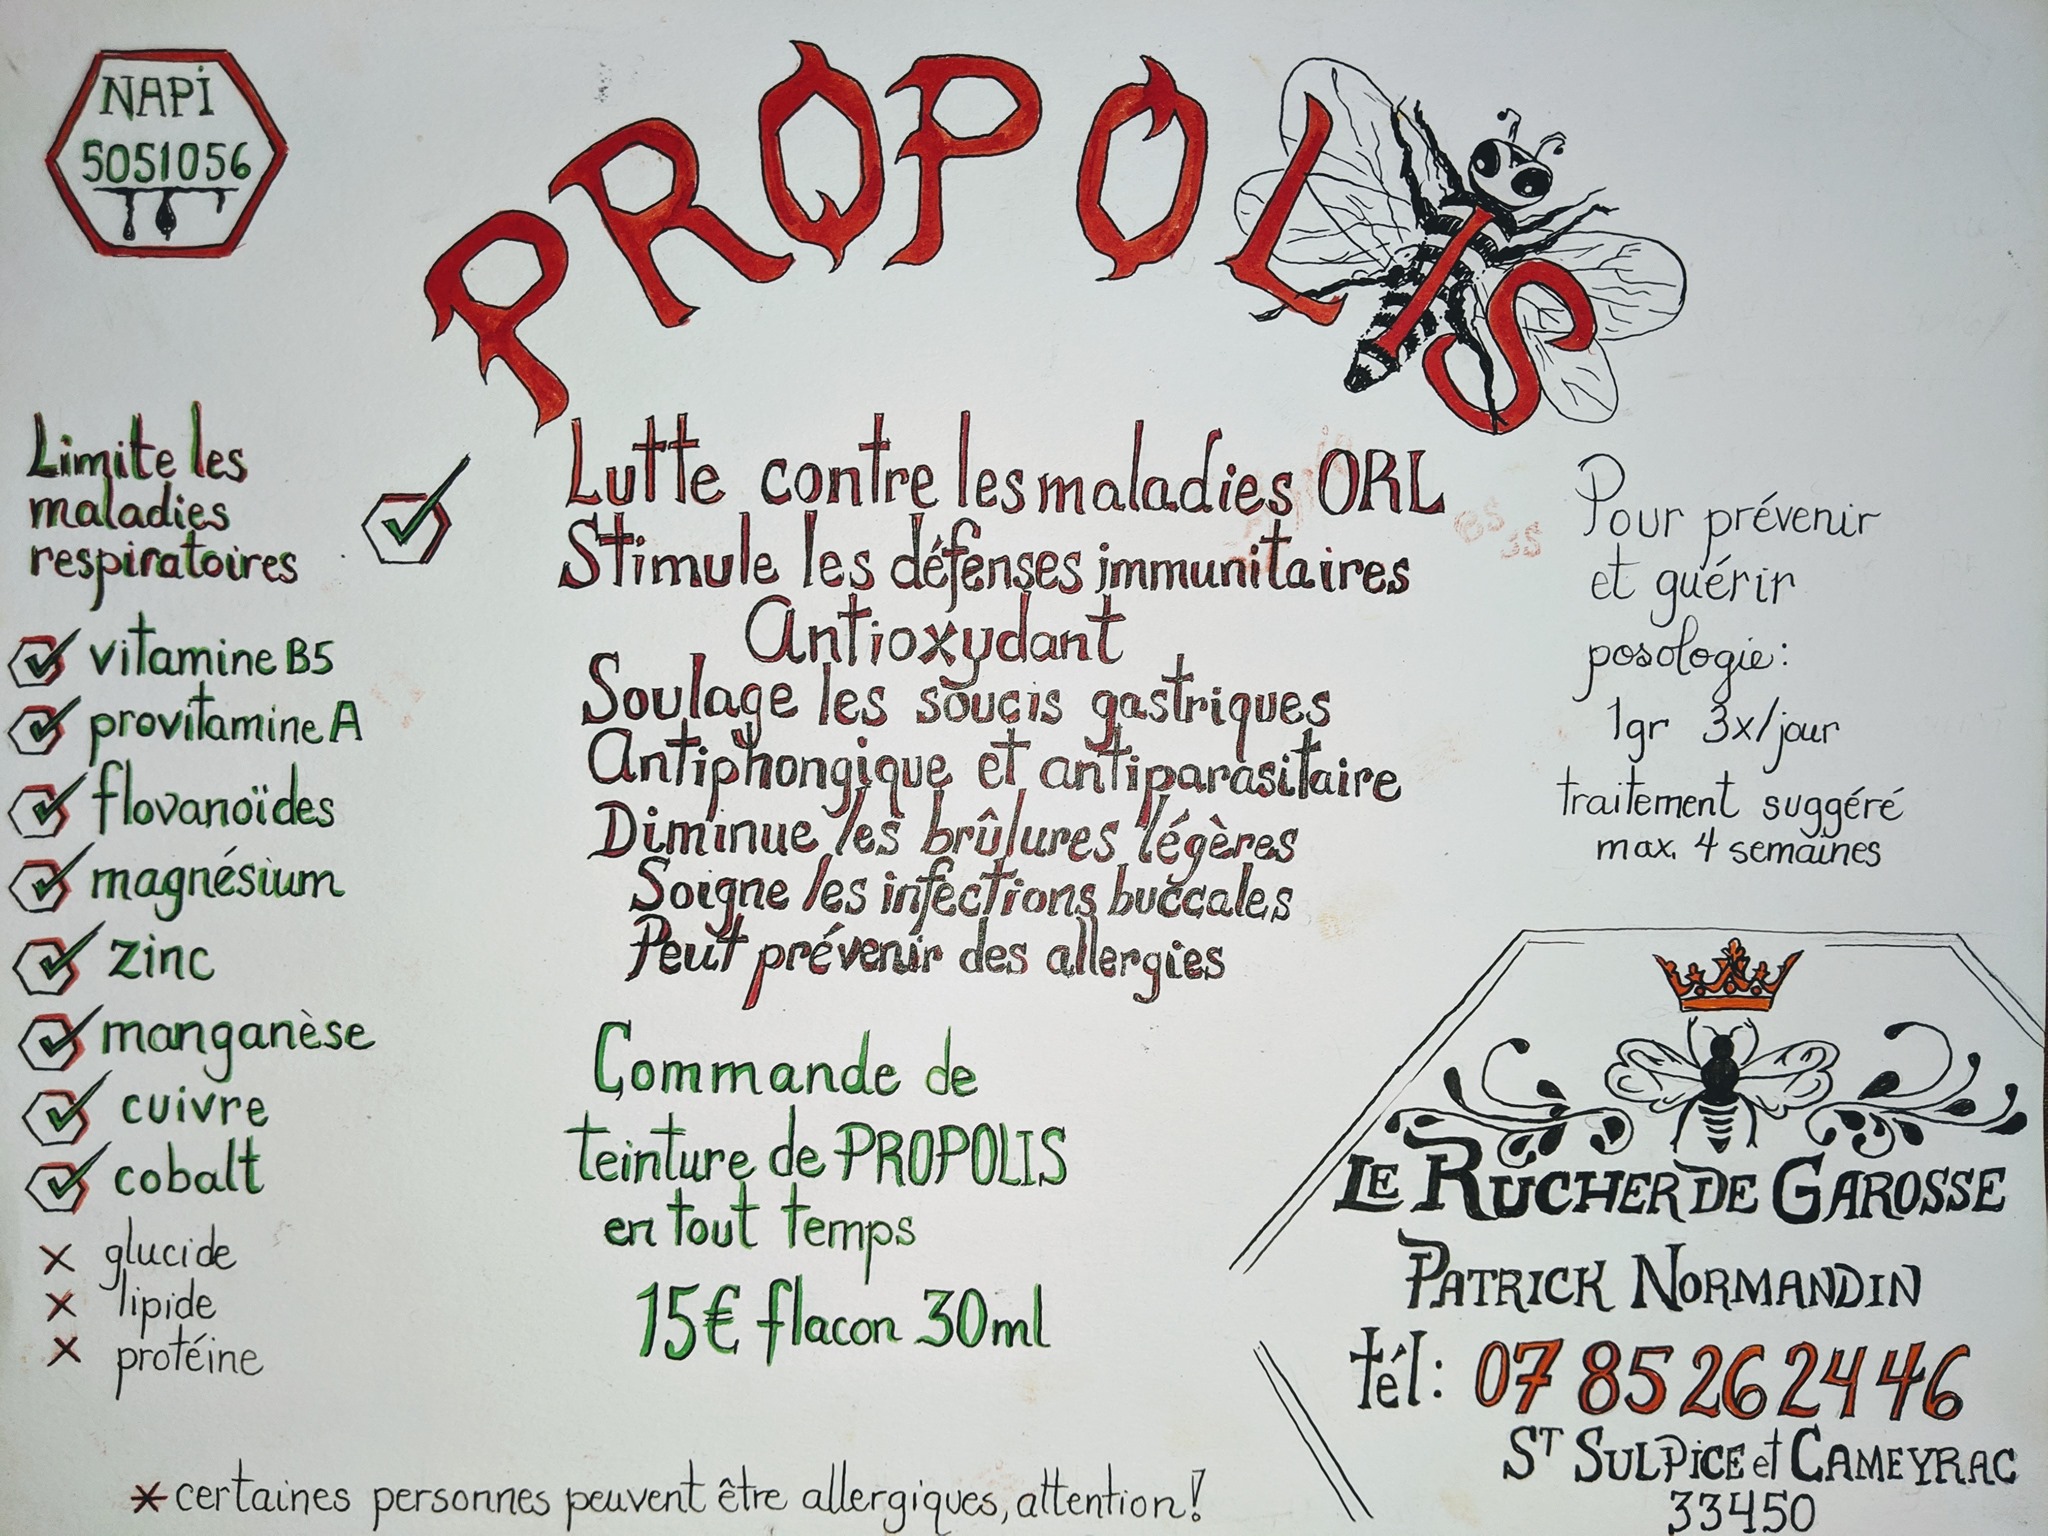 NAPI
5051056
PROPOLIS
Limite les
maladies
respiratoires
vitamine B5
provitamine A
flovanoïdes
magnésium
zinc
manganèse
cuivre
cobalt
glucide
lipide
protéine
Lutte contre les maladies ORL
Stimule les défenses immunitaires
Antioxydant
Soulage les soucis gastriques
Antiphongique et antiparasitaire
Diminue les brûlures légères
Soigne les infections buccales
Peut prévenir des allergies
Commande de
teinture de PROPOLIS
en tout temps
15€ flacon 30ml
Pour prévenir
et guérir
posologie:
1gr 3x/jour
traitement suggéré
max. 4 semaines
LE RUCHER DE GAROSSE
PATRICK NORMANDIN
tél: 07 85 26 24 46
ST SULPICE et CAMEYRAC
33450
*certaines personnes peuvent être allergiques, attention!